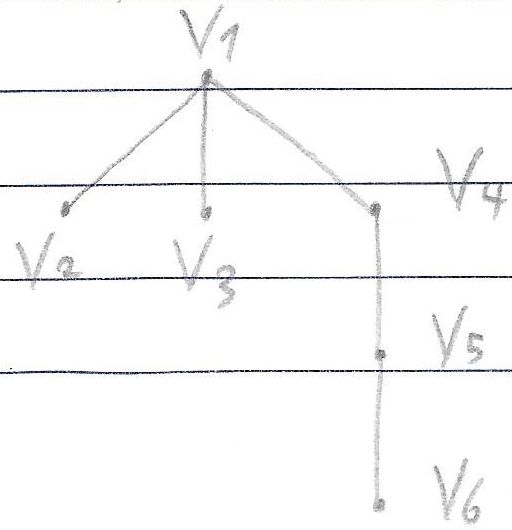 V1
V4
V2 V3
V5
V6